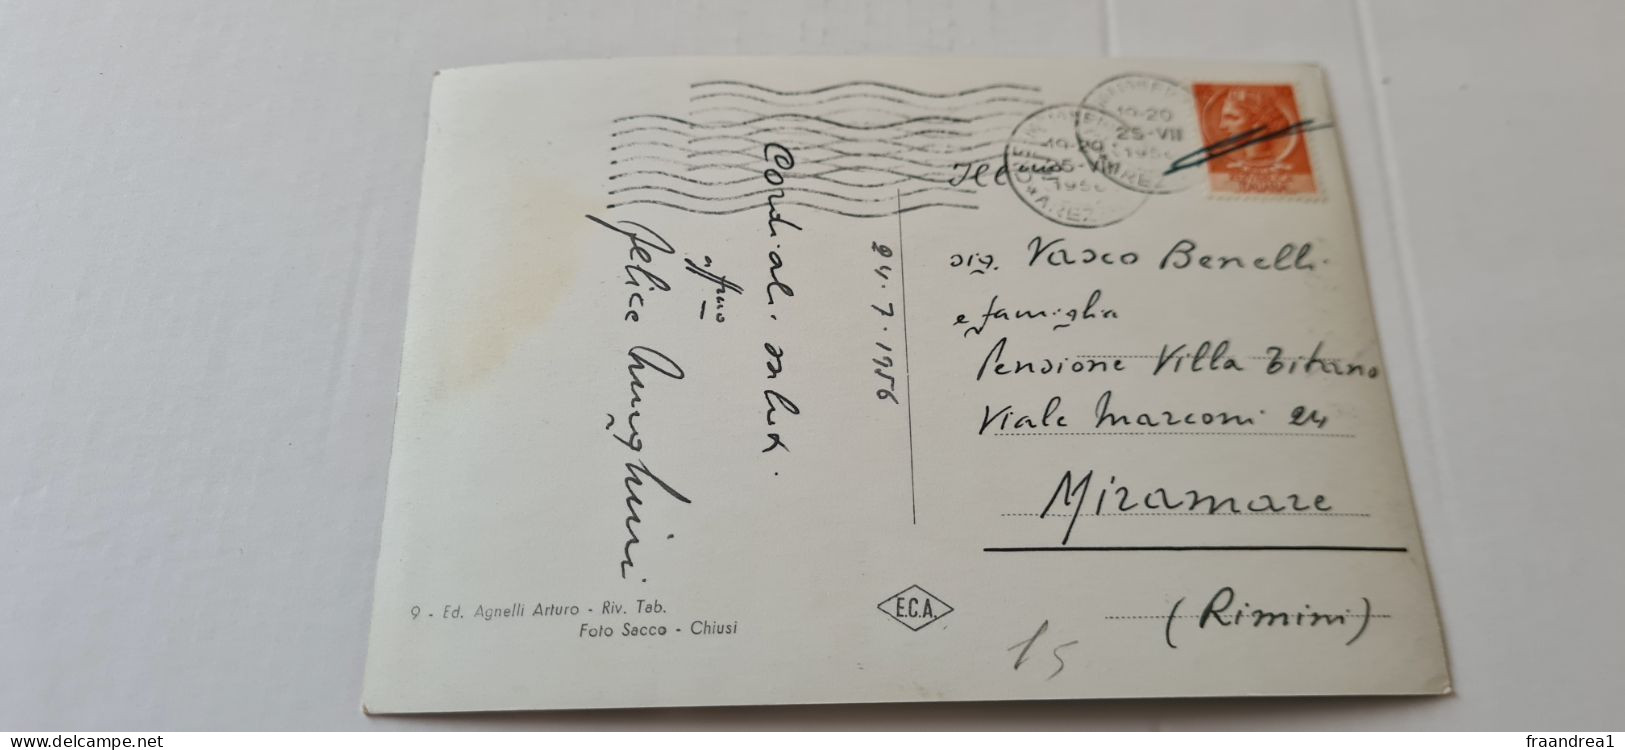 Cordiali saluti.
aff.mo
Felice
24.7.1956
19-20
25-VII
1956
19-20
25-VII
1956
AREZ
Ill.mo
sig. Vasco Benelli
e famiglia
Pensione Villa Titano
Viale Marconi 24
Miramare
(Rimini)
15
E.C.A.
9 - Ed. Agnelli Arturo - Riv. Tab.
Foto Sacco - Chiusi
www.delcampe.net
fraandrea1